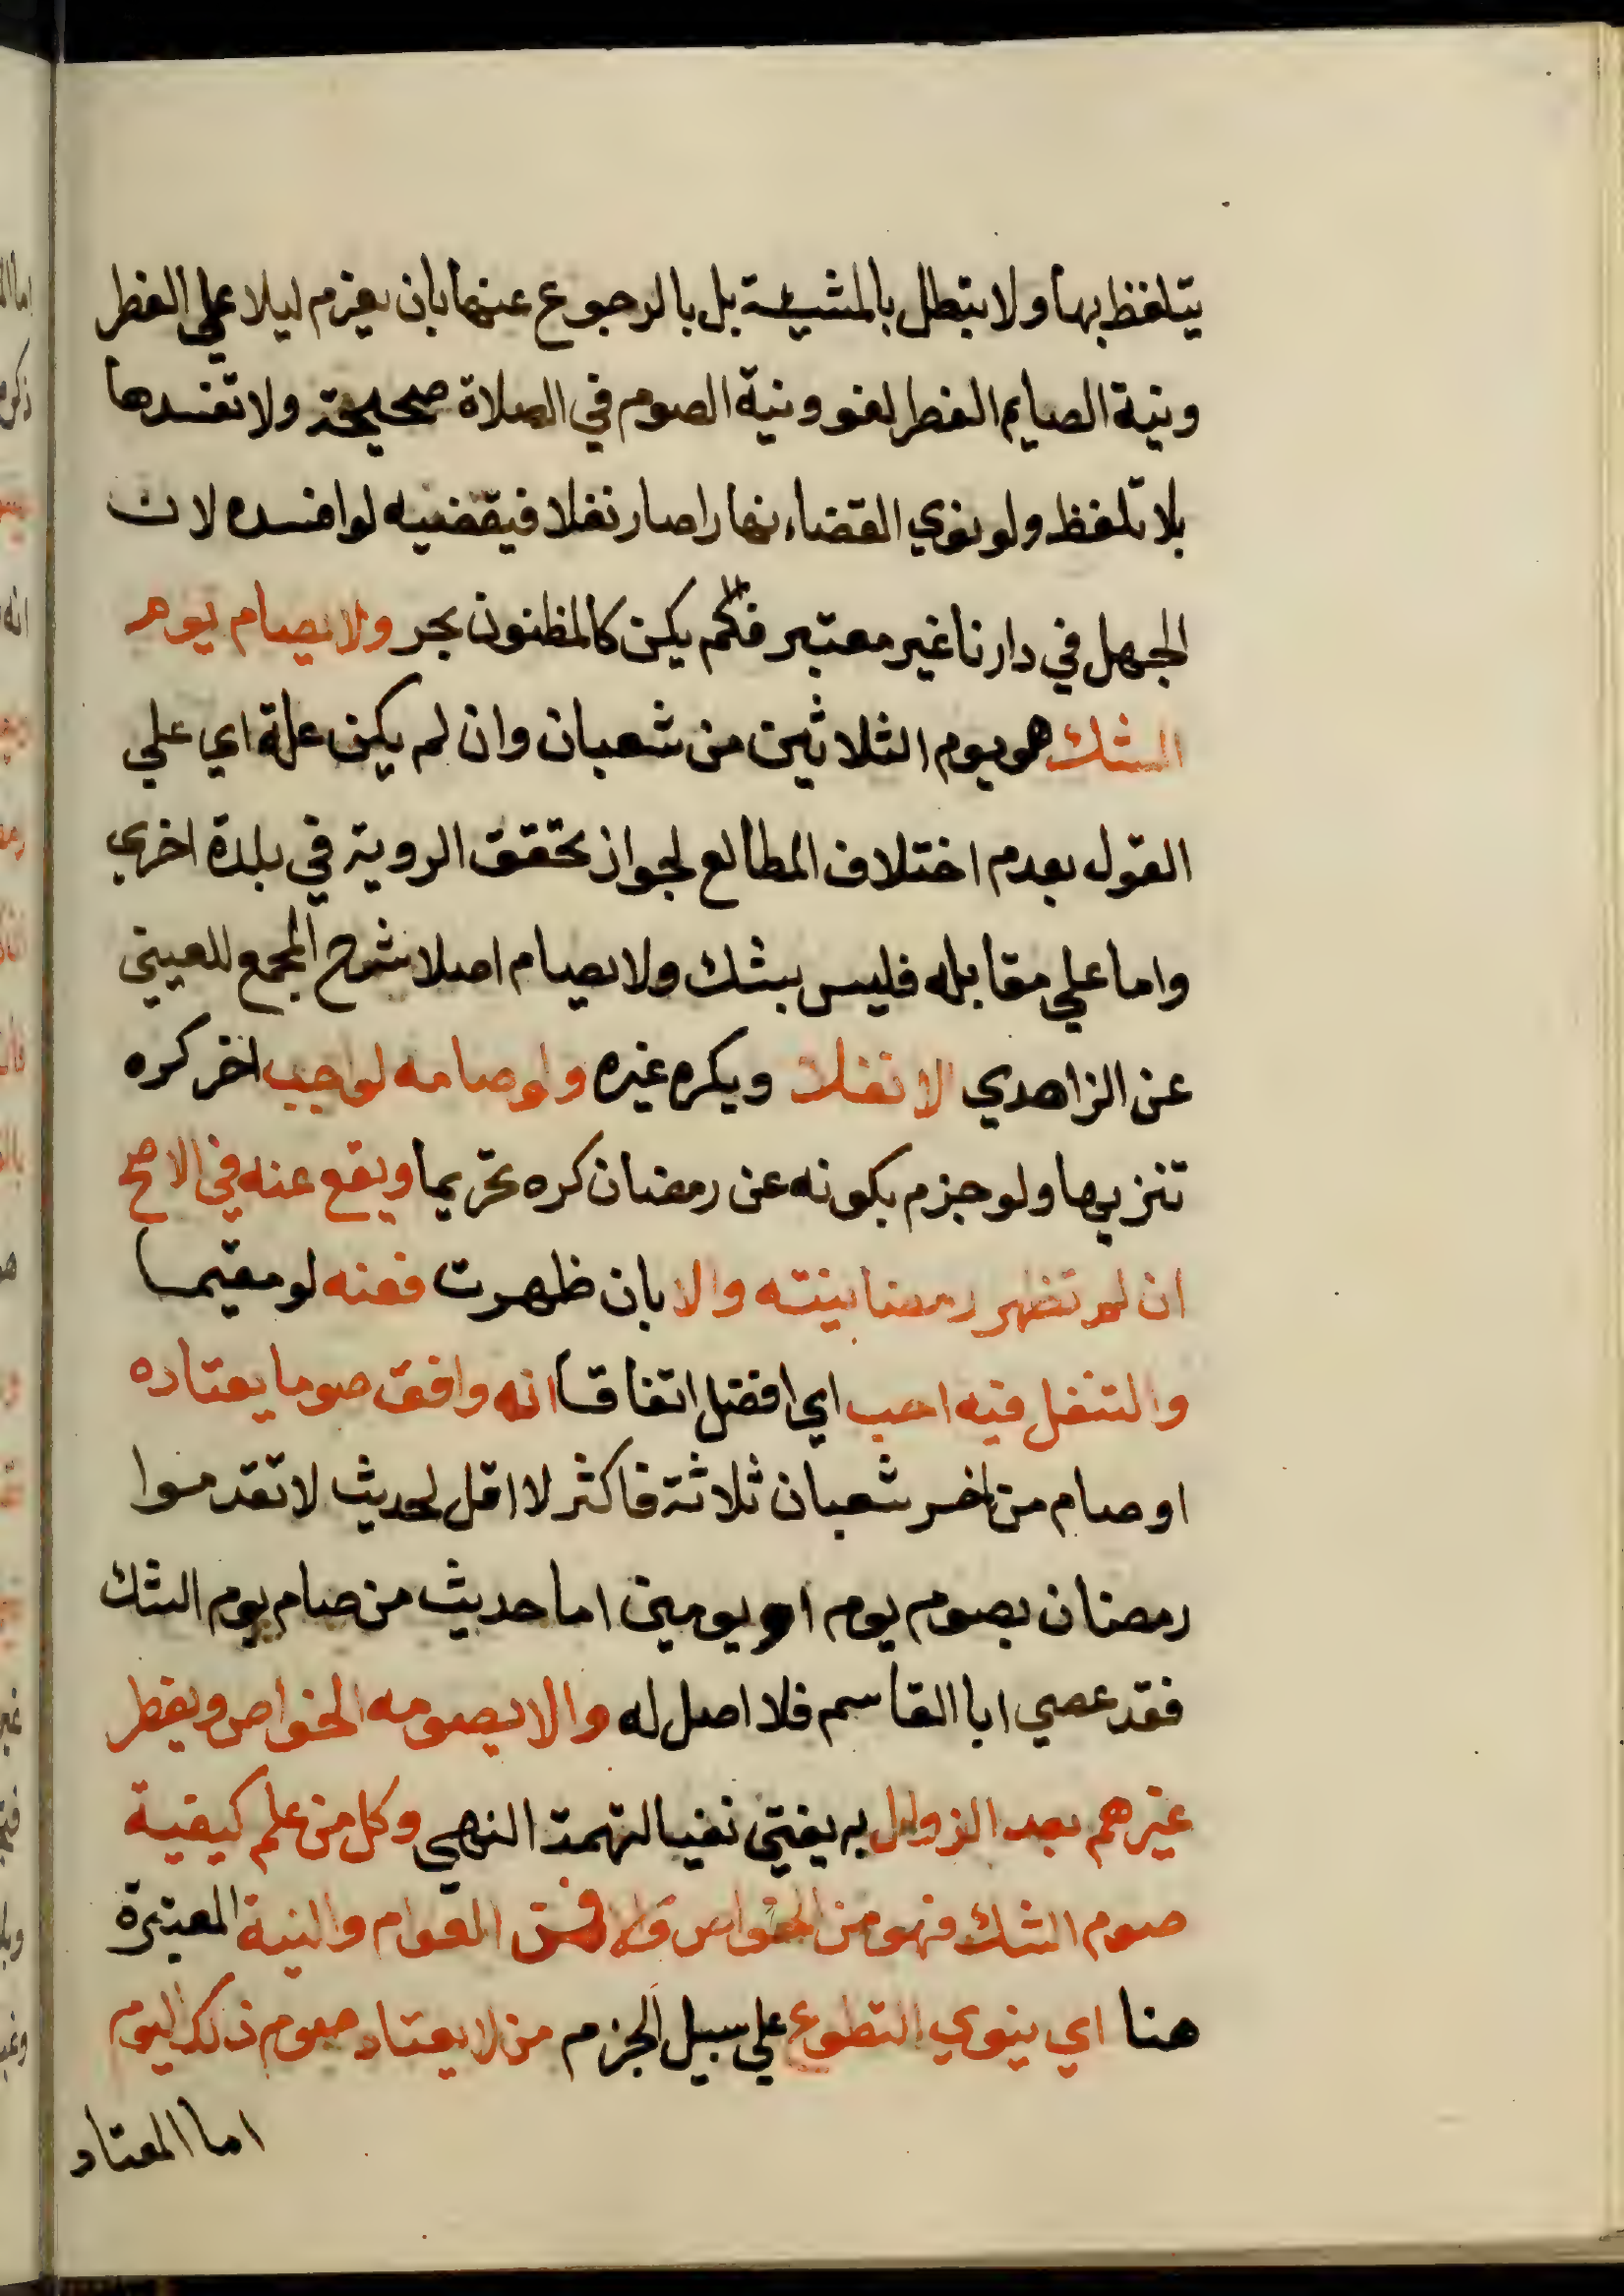 يتلفظ بها ولا تبطل بالمشيئة بل بالرجوع عنها بان يعزم ليلا علي الفطر
ونية الصايم الفطر لغو ونية الصوم في الصلاة صحيحة ولا تفسدها
بلا تلفظ ولو نوي القضاء نهارا صار نفلا فيقضيه لو افسده لان
الجهل في دارنا غير معتبر فلم يكن كالمظنون بحر ولا يصام يوم
الشك هو يوم الثلاثين من شعبان وان لم يكن علة اي علي
القول بعدم اختلاف المطالع لجواز تحقق الروية في بلدة اخري
واما علي مقابله فليس بشك ولا يصام اصلا شرح المجمع للعيني
عن الزاهدي الا نفلا ويكره غيره ولو صامه لواجب اخر كره
تنزيها ولو جزم بكونه عن رمضان كره تحريما ويقع عنه في الاصح
ان لم تظهر رمضانيته والا بان ظهرت فعنه لو مقيما
والتنفل فيه احب اي افضل اتفاقا انه وافق صوما يعتاده
او صام من اخر شعبان ثلاثة فاكثر لا اقل لحديث لا تقدموا
رمضان بصوم يوم او يومين اما حديث من صام يوم الشك
فقد عصي ابا القاسم فلا اصل له والا يصومه الخواص ويفطر
غيرهم بعد الزوال به يفتي نفيا لتهمة النهي وكل من علم كيفية
صوم الشك فهو من الخواص والا فمن العوام والنية المعتبرة
هنا اي ينوي التطوع علي سبيل الجزم من لا يعتاد صوم ذلك اليوم
اما المعتاد